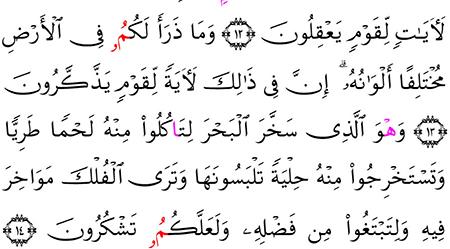 لَأٓيَٰتٖ لِّقَوۡمٖ يَعۡقِلُونَ ١٢ وَمَا ذَرَأَ لَكُمُۥ فِي اِ۬لۡأَرۡضِ
مُخۡتَلِفًا أَلۡوَٰنُهُۥٓۗ إِنَّ فِي ذَٰلِكَ لَأٓيَةٗ لِّقَوۡمٖ يَذَّكَّرُونَ
١٣ وَهۡوَ اَ۬لَّذِي سَخَّرَ اَ۬لۡبَحۡرَ لِتَاكُلُواْ مِنۡهُ لَحۡمٗا طَرِيّٗا
وَتَسۡتَخۡرِجُواْ مِنۡهُ حِلۡيَةٗ تَلۡبَسُونَهَا وَتَرَى اَ۬لۡفُلۡكَ مَوَاخِرَ
فِيهِ وَلِتَبۡتَغُواْ مِن فَضۡلِهِۦ وَلَعَلَّكُمُۥ تَشۡكُرُونَ ١٤